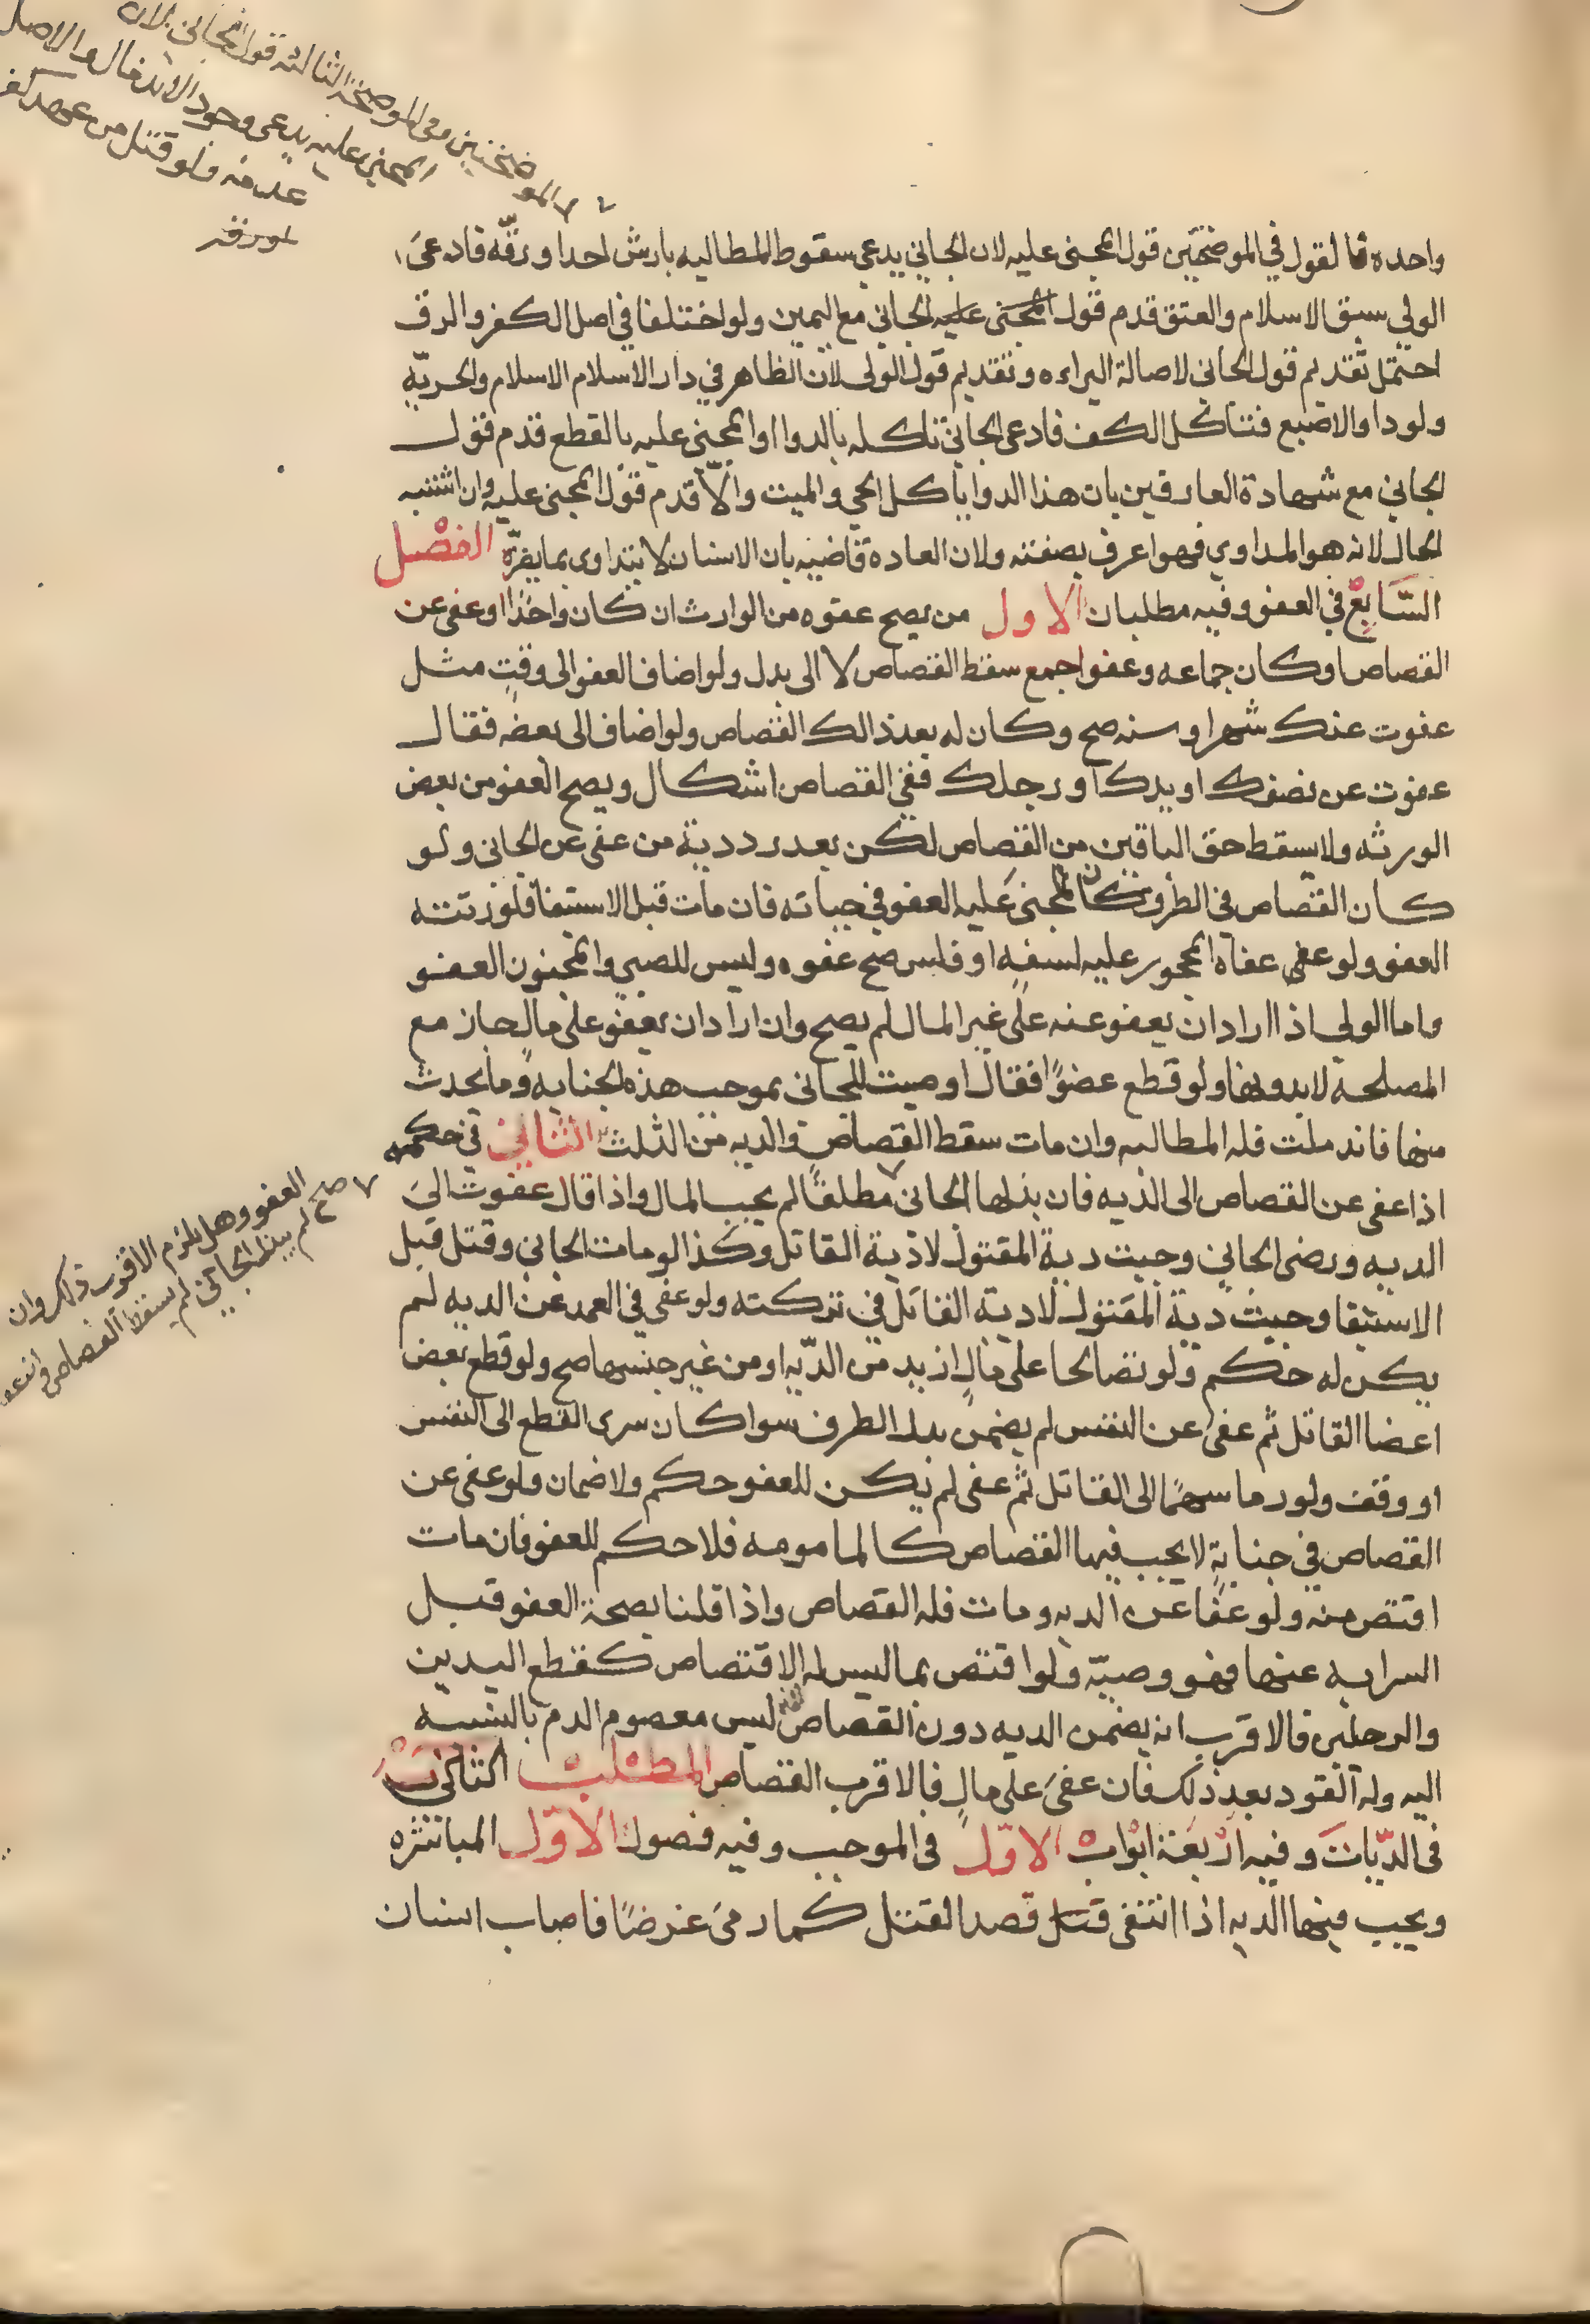 والموضحتين وفي الموضحة الثالثة قول الجاني لان
المجني عليه يدعي وجود الاندمال والاصل
عدمه ولو قتل من عهد كفر
او رقه
واحده فالقول في الموضحتين قول المجنى عليه لان الجاني يدعي سقوط المطالبه بارش احدا ورقه فادعى
الولي سبق الاسلام والعتق قدم قول المجنى عليه الجاني مع اليمين ولو اختلفا في اصل الكفر والرق
احتمل تقديم قول الجاني لاصالة البراءه وتقديم قول الولي لان الظاهر في دار الاسلام الاسلام والحريّة
ولو داوا الاصبع فتاكل الكف فادعى الجاني تاكله بالدوا او المجنى عليه بالقطع قدم قول
الجاني مع شهادة العارفين بان هذا الدوا ياكل الحي والميت والّا قدم قول المجنى عليه وان اشتبه
الحال لانه هو المداوي فهو اعرف بصفته ولان العاده قاضيه بان الانسان لا يتداوى بما يضرّه الفصل
السّابع في العفو وفيه مطلبان الاول من يصح عفوه من الوارث ان كان واحدًا وعفى عن
القصاص او كان جماعه وعفوا جمع سقط القصاص لا الى بدل ولو اضاف العفو الى وقت مثل
عفوت عنك شهرا او سنه صح وكان له بعد ذالك القصاص ولو اضاف الى بعضه فقال
عفوت عن نصفك او يدك او رجلك ففي القصاص اشكال ويصح العفو من بعض
الورثه ولا يسقط حق الباقين من القصاص لكن بعد رد دية من عفى عن الجاني ولو
كان القصاص في الطرف كان للمجنى عليه العفو في حياته فان مات قبل الاستيفا فلورثته
العفو ولو عفى عفاه المحجور عليه لسفه او فلس صح عفوه وليس للصبي والمجنون العفو
واما الولي اذا اراد ان يعفو عنه على غير المال لم يصح وان اراد ان يعفو على مال جاز مع
المصلحه لا بدونها ولو قطع عضوًا فقال اوصيت للجاني بموجب هذه الجنايه وما يحدث
منها فاندملت فله المطالبه وان مات سقط القصاص والديه من الثلث الثاني في حكمه
اذا عفى عن القصاص الى الديه فان بذلها الجاني مطلقًا لم يجب المال واذا قال عفوت الى
الديه ورضى الجاني وجبت دية المقتول لا دية القاتل وكذا لو مات الجاني وقتل قبل
الاستيفا وجبت دية المقتول لا دية القاتل في تركته ولو عفى في العمد عن الديه لم
يكن له حكم ولو تصالحا على مالٍ ازيد من الدّيه او من غير جنسها صح ولو قطع بعض
اعضا القاتل ثم عفى عن النفس لم يضمن بدل الطرف سوا كان سرى القطع الى النفس
او وقف ولو رما سهمًا الى القاتل ثم عفى لم يكن للعفو حكم ولا ضمان ولو عفى عن
القصاص في جناية لا يجب فيها القصاص كالمامومه فلا حكم للعفو فان مات
اقتص منه ولو عفا عن الديه ومات فله القصاص واذا قلنا بصحة العفو قبل
السرايه عنها فهو وصيّة ولو اقتص بما ليس له الاقتصاص كقطع اليدين
والرجلين فالاقرب انه يضمن الديه دون القصاص لانه ليس معصوم الدم بالنسبه
اليه وله القود بعد ذلك فان عفى على مالٍ فالاقرب القصاص المطلب الثالث
في الدّيات وفيه اربعة ابواب الاوّل في الموجب وفيه فصول الاوّل المباشره
ويجب فيها الديه اذا انتفى قتل قصد القتل كما رمى غرضًا فاصاب انسان
صح العفو وهل يلزم الاقرب ذلك وان
لم يبذل الجاني لم يسقط القصاص وان عفى